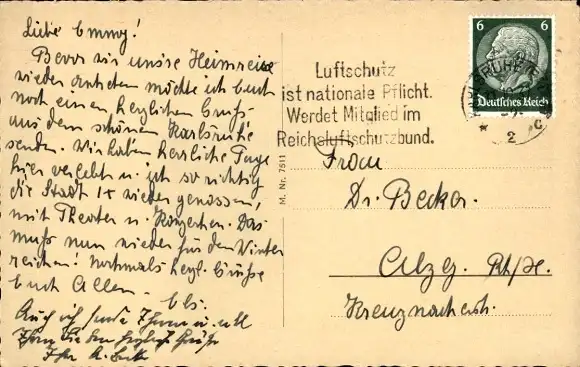 Liebe Emmy!
Bevor wir unsre Heimreise
wieder antreten möchte ich Euch
noch einen herzlichen Gruß
aus dem schönen Karlsruhe
senden. Wir haben herrliche Tage
hier verlebt u. ich so richtig
die Stadt wieder genossen,
mit Theater u. Konzerten. Das
muß nun wieder für den Winter
reichen! Nochmals herzl. Grüße
Euch Allen
Auch ich sende Ihnen u. all
Ihr
Luftschutz
ist nationale Pflicht.
Werdet Mitglied im
Reichsluftschutzbund.
6 6
Deutsches Reich
KARLSRUHE
* 2 c
M. Nr. 7611
Frau
Dr. Becker.
Alzey. Rh/H.
Kreuznacherstr.